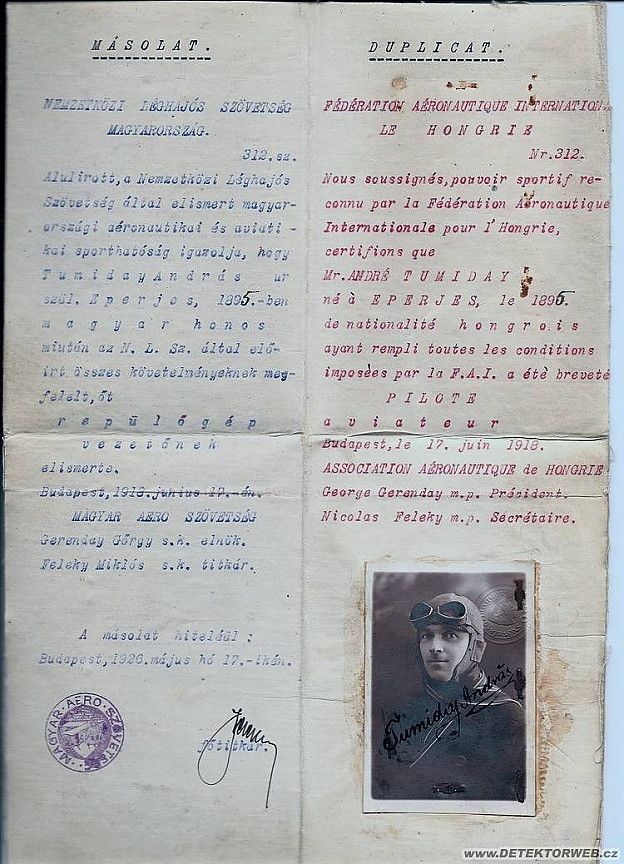 MÁSOLAT.
NEMZETKÖZI LÉGHAJÓS SZÖVETSÉG
MAGYARORSZÁG.
312.sz.
Alulirott,a Nemzetközi Léghajós
Szövetség által elismert magyar-
országi aéronautikai és aviati-
kai sporthatóság igazolja, hogy
Tumiday András ur
szül. Eperjes, 1895.-ben
magyar honos
miután az N. L. Sz. által elő-
irt összes követelményeknek meg-
felelt,őt
repülőgép
vezetőnek
elismerte.
Budapest,1918.junius 17.-én.
MAGYAR AERO SZÖVETSÉG
Gerenday Görgy s.k. elnök.
Feleky Miklós s.k. titkár.
A másolat hiteléül :
Budapest,1926.május hó 17.-ikén.
MAGYAR AERO SZÖVETSÉG
főtitkár.
DUPLICAT.
FÉDÉRATION AÉRONAUTIQUE INTERNATION.
LE HONGRIE
Nr.312.
Nous soussignés,pouvoir sportif re-
connu par la Fédération Aéronautique
Internationale pour l'Hongrie,
certifions que
Mr.ANDRÉ TUMIDAY
né à EPERJES, le 1895.
de nationalité hongrois
ayant rempli toutes les conditions
imposées par la F.A.I. a été breveté
PILOTE
aviateur
Budapest,le 17. juin 1918.
ASSOCIATION AÉRONAUTIQUE de HONGRIE
George Gerenday m.p. Président.
Nicolas Feleky m.p. Secrétaire.
Tumiday András
WWW.DETEKTORWEB.CZ